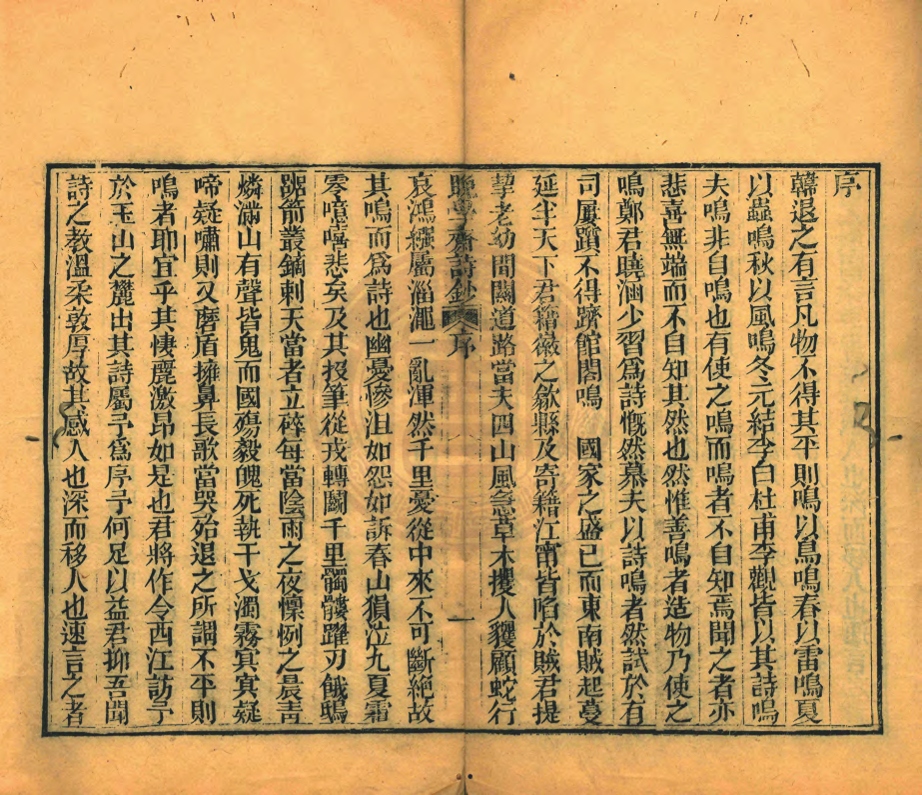 序
韓退之有言凡物不得其平則鳴以鳥鳴春以雷鳴夏
以蟲鳴秋以風鳴冬元結李白杜甫李觀皆以其詩鳴
夫鳴非自鳴也有使之鳴而鳴者不自知焉聞之者亦
悲喜無端而不自知其然也然惟善鳴者造物乃使之
鳴鄭君曉涵少習爲詩慨然慕夫以詩鳴者然試於有
司屢躓不得躋館閣鳴 國家之盛已而東南賊起蔓
延半天下君籍徽之歙縣及寄籍江甯皆陷於賊君提
挈老幼間關道路當夫四山風急草木攫人貜顧蛇行
晚學齋詩鈔 序 一
哀鴻綴屬淄澠一亂渾然千里憂從中來不可斷絶故
其鳴而爲詩也幽憂慘沮如怨如訴春山猿泣九夏霜
零噫嘻悲矣及其投筆從戎轉鬬千里髑髏躍刃餓鴟
踞箭叢鏑刺天當者立碎每當陰雨之夜懍慄之晨靑
燐滿山有聲皆鬼而國殤毅魄死執干戈濁霧冥冥疑
啼疑嘯則又磨盾擁鼻長歌當哭殆退之所謂不平則
鳴者耶宜乎其悽麗激昂如是也君將作令西江訪予
於玉山之麓出其詩屬予爲序予何足以益君抑吾聞
詩之教溫柔敦厚故其感人也深而移人也速言之者